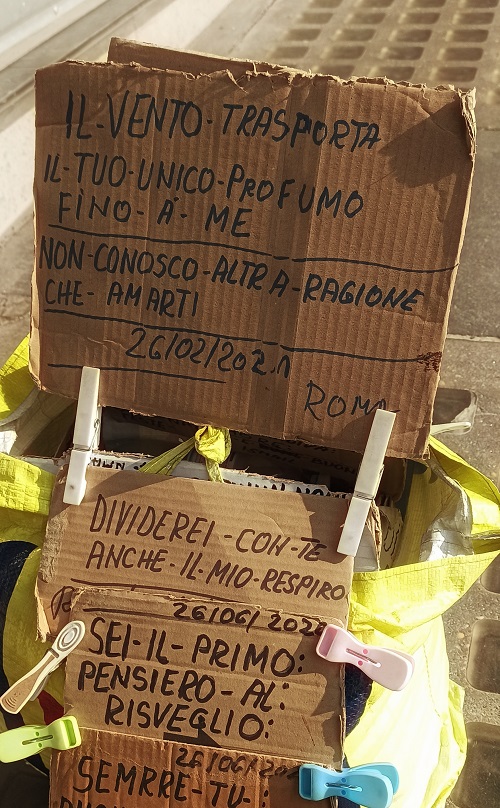 IL-VENTO-TRASPORTA
IL-TUO-UNICO-PROFUMO
FINO-A-ME
NON-CONOSCO-ALTRA-RAGIONE
CHE-AMARTI
26/02/2021
ROMA
DIVIDEREI-CON-TE
ANCHE-IL-MIO-RESPIRO
26/06/202
SEI-IL-PRIMO:
PENSIERO-AL:
RISVEGLIO:
26/06/202
SEMRRE-TU-: